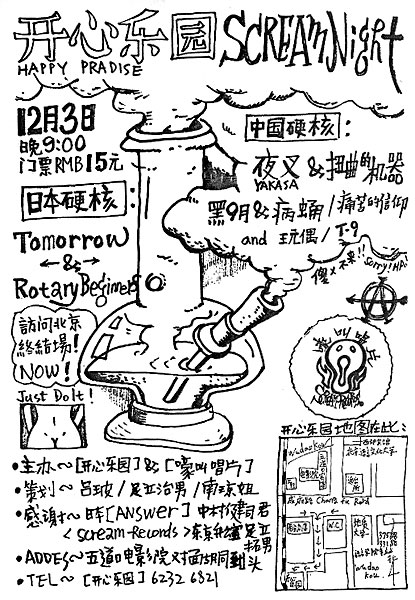 开心乐园 SCREAM Night
HAPPY PRADISE
12月3日
晚9:00
门票RMB 15元
中国硬核:
夜叉 & 扭曲的机器
YAKASA
黑9月 & 病蛹 / 痛苦的信仰
and 玩偶 / T-9
傻×裸!! Sorry! HA!
日本硬核
Tomorrow
&
Rotary Beginners
访问北京
終結場!
NOW!
Just Do It!
嚎叫唱片
开心乐园地图在此:
Wudao Kou
Cheng Fu Road
N.C.
Wudao Kou
•主办~[开心乐园]&[嚎叫唱片]
•策划~吕玻/足立治男/南琼姐
•感谢~[ANSWER]中村健司君
<scream-Records>东京分舵 足立拓男
•ADDES~五道口电影院对面胡同到头
•TEL~[开心乐园]6232 6821